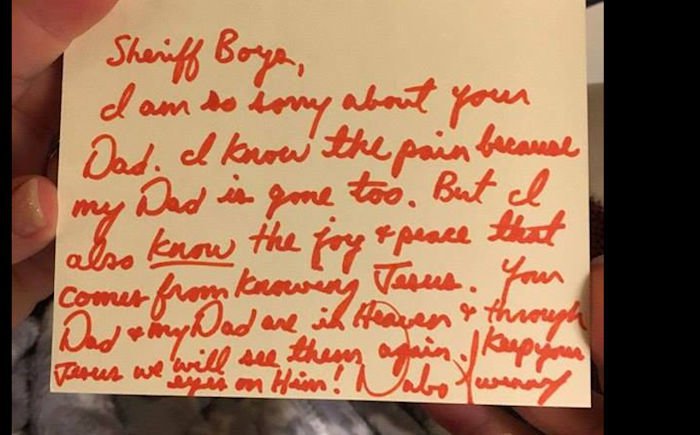 Sheriff
I am so sorry about your
Dad. I know the pain because
my Dad is gone too. But I
also know the joy + peace that
comes from knowing Jesus. Your
Dad + my Dad are in Heaven + through
Jesus we will see them again. Keep your
eyes on Him! Dabo Swinney